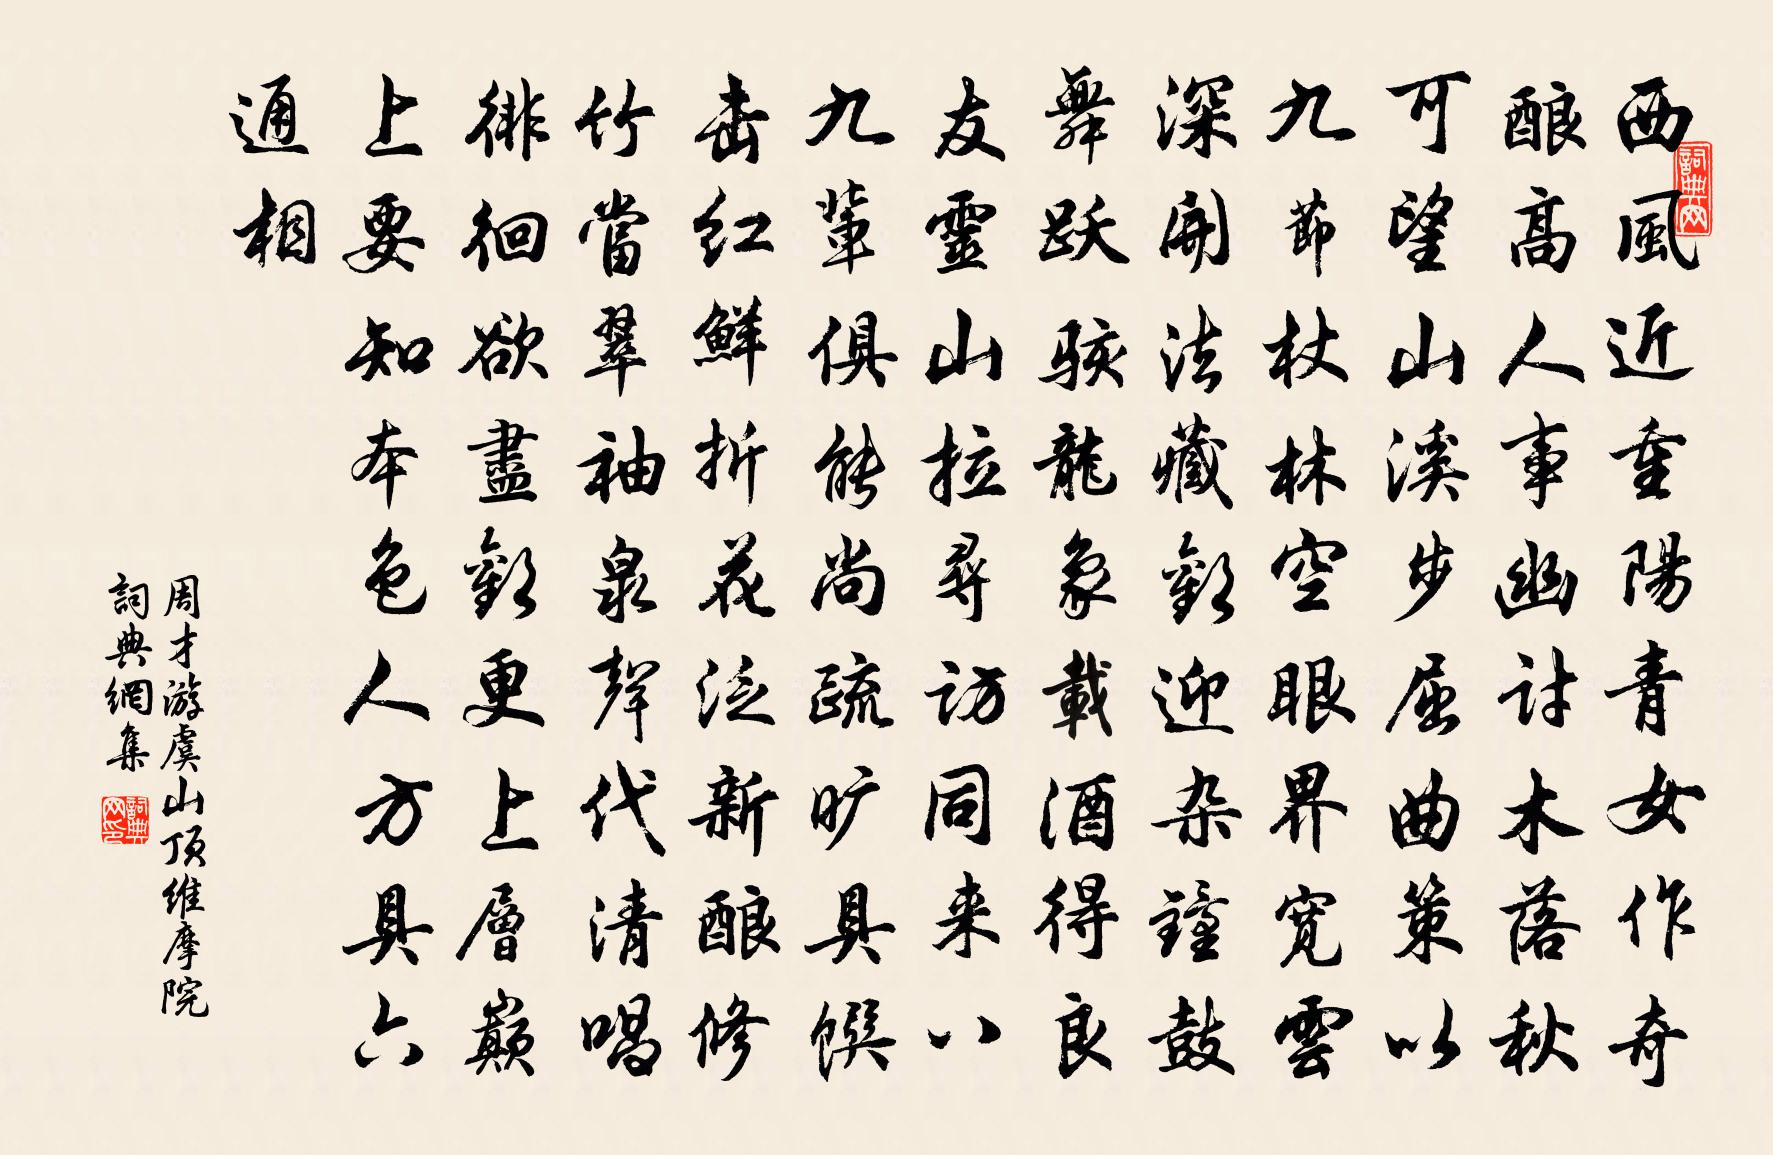 西風近重陽青女作奇
酿高人事幽討木落秋
可望山溪步屈曲策以
九節杖林空眼界宽雲
深開法藏歡迎杂鐘鼓
舞跃骇龍象載酒得良
友靈山拉尋訪同来八
九輩俱能尚疏旷具馔
击红鮮折花泛新酿修
竹當翠袖泉聲代清唱
徘徊欲盡歡更上層巅
上要知本色人方具六
通相
周才游虞山顶维摩院
詞典網集
詞典网
詞典网印